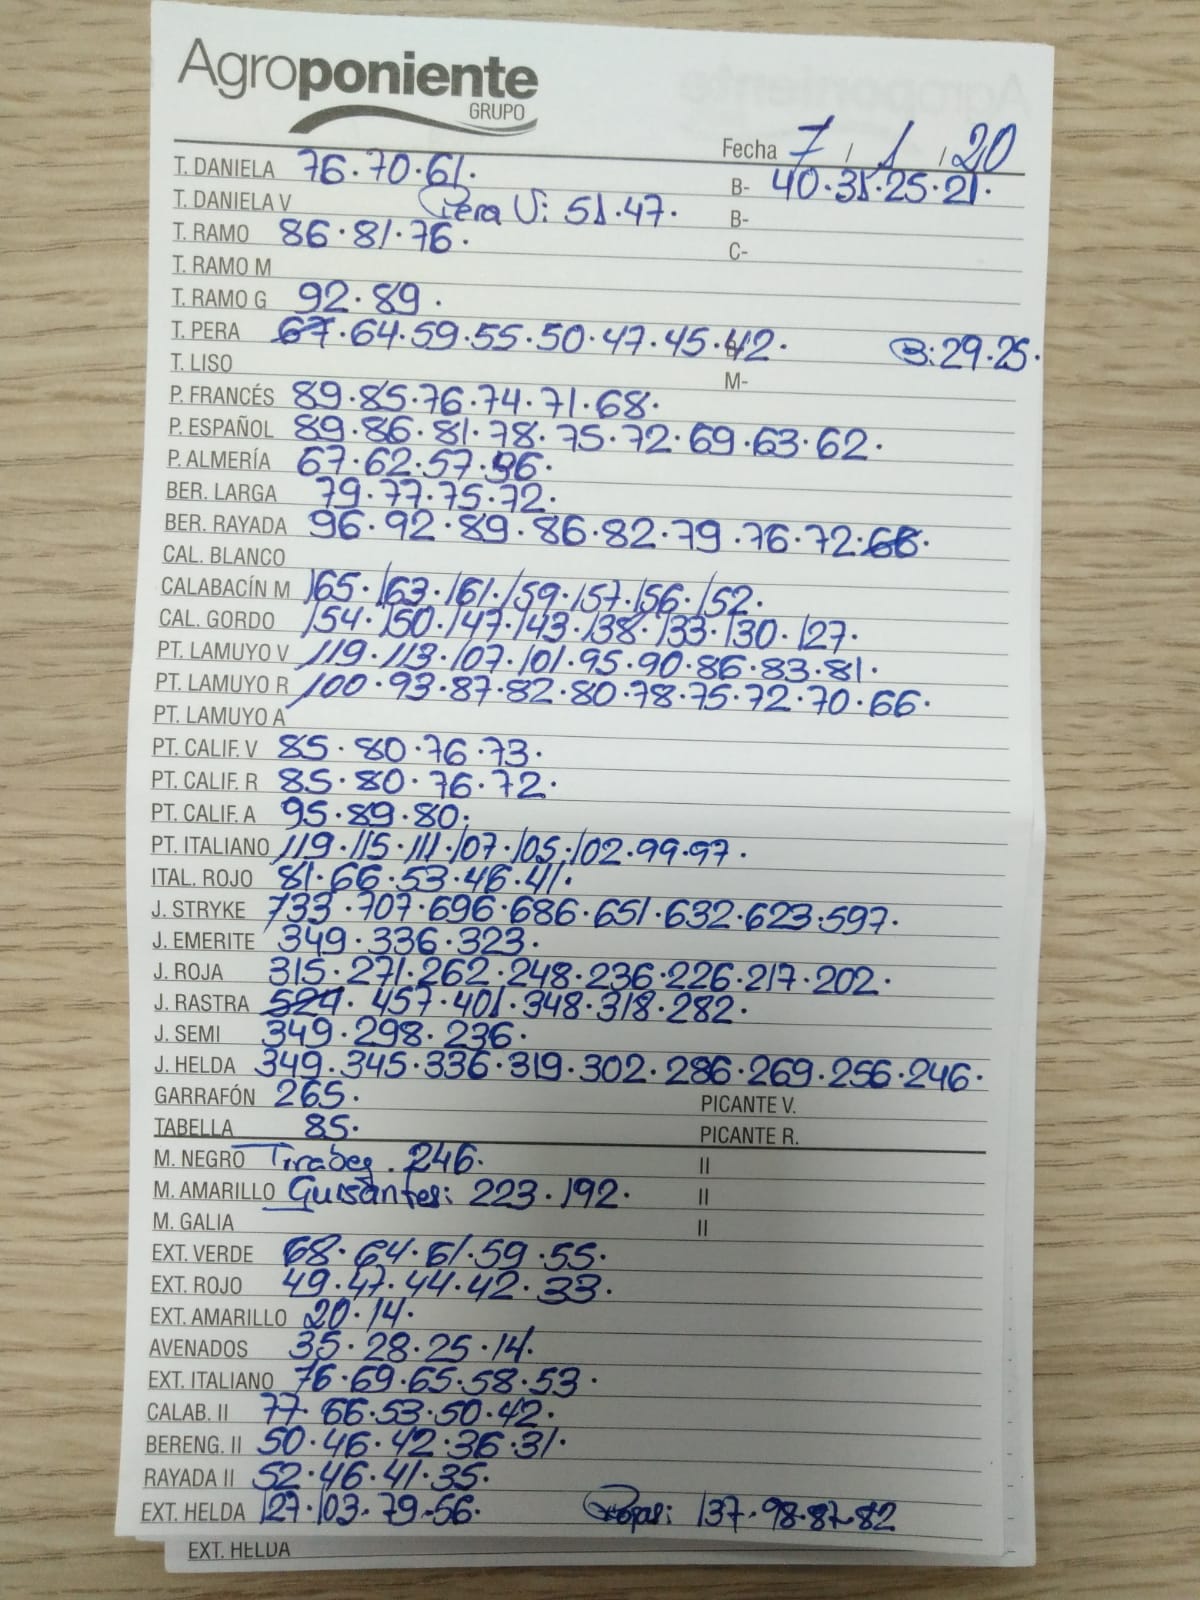 Agroponiente
GRUPO
Fecha 7 / 1 / 20
T. DANIELA 76.70.61. B- 40.31.25.21.
T. DANIELA V Pera V: 51.47. B-
T. RAMO 86.81.76. C-
T. RAMO M
T. RAMO G 92.89.
T. PERA 67.64.59.55.50.47.45.42. B:29.25.
T. LISO M-
P. FRANCÉS 89.85.76.74.71.68.
P. ESPAÑOL 89.86.81.78.75.72.69.63.62.
P. ALMERÍA 67.62.57.56.
BER. LARGA 79.77.75.72.
BER. RAYADA 96.92.89.86.82.79.76.72.66.
CAL. BLANCO
CALABACÍN M 165.163.161.159.157.156.152.
CAL. GORDO 154.150.147.143.138.133.130.127.
PT. LAMUYO V 119.113.107.101.95.90.86.83.81.
PT. LAMUYO R 100.93.87.82.80.78.75.72.70.66.
PT. LAMUYO A
PT. CALIF. V 85.80.76.73.
PT. CALIF. R 85.80.76.72.
PT. CALIF. A 95.89.80.
PT. ITALIANO 119.115.111.107.105.102.99.97.
ITAL. ROJO 81.66.53.46.41.
J. STRYKE 733.707.696.686.651.632.623.597.
J. EMERITE 349.336.323.
J. ROJA 315.271.262.248.236.226.217.202.
J. RASTRA 521.457.401.348.318.282.
J. SEMI 349.298.236.
J. HELDA 349.345.336.319.302.286.269.256.246.
GARRAFÓN 265. PICANTE V.
TABELLA 85. PICANTE R.
M. NEGRO Tirabeq. 246. II
M. AMARILLO Guisantes: 223.192. II
M. GALIA II
EXT. VERDE 68.64.61.59.55.
EXT. ROJO 49.47.44.42.33.
EXT. AMARILLO 20.14.
AVENADOS 35.28.25.14.
EXT. ITALIANO 76.69.65.58.53.
CALAB. II 77.66.53.50.42.
BERENG. II 50.46.42.36.31.
RAYADA II 52.46.41.35.
EXT. HELDA 127.103.79.56. 137.98.87.82
EXT. HELDA